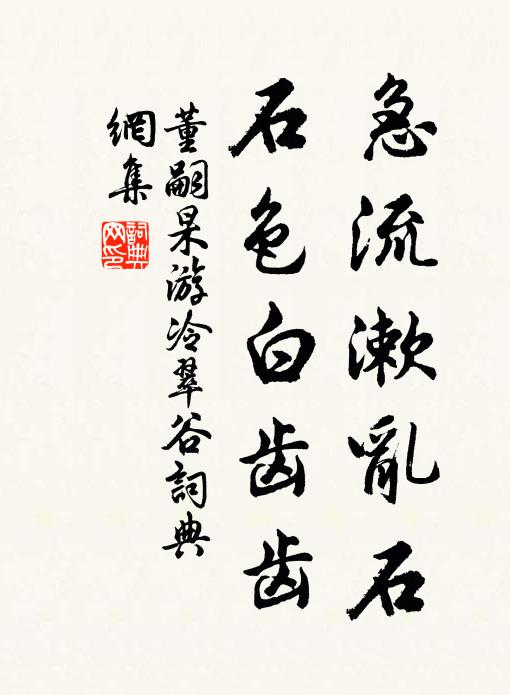 急流漱亂石
石色白齿齿
董嗣杲游冷翠谷詞典
網集
詞典
网印